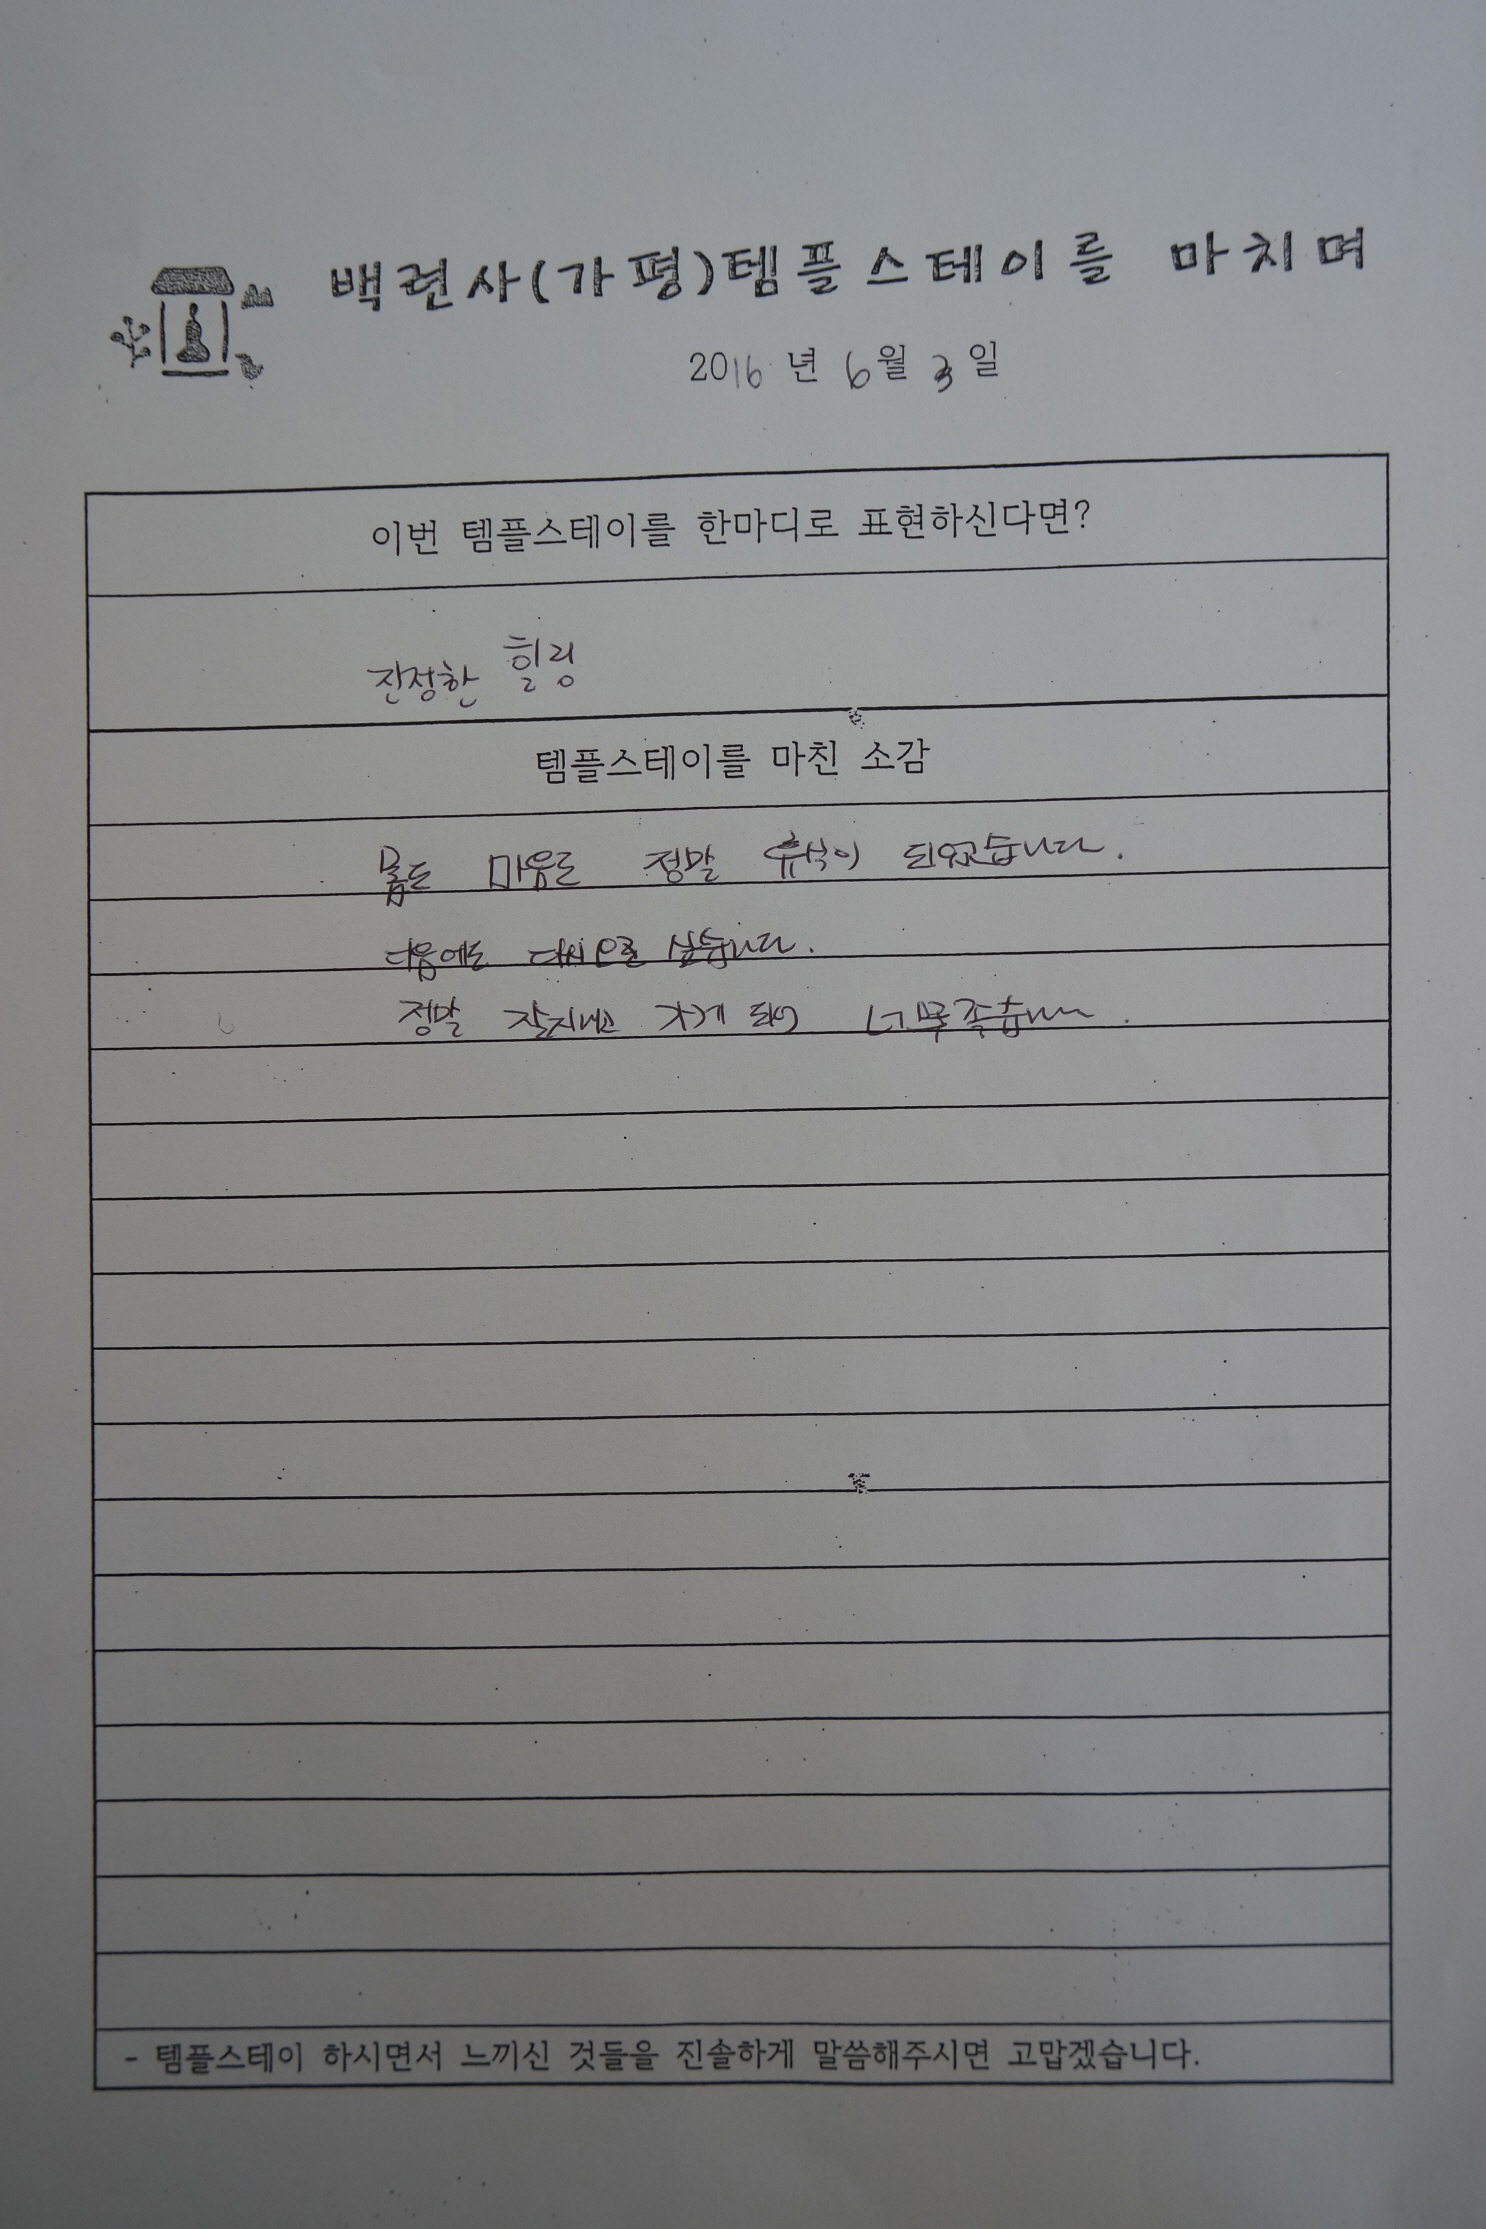 백련사(가평)템플스테이를 마치며
2016 년 6월 3일
이번 템플스테이를 한마디로 표현하신다면?
진정한 힐링
템플스테이를 마친 소감
몸도 마음도 정말 휴식이 되었습니다.
다음에도 다시 오고 싶습니다.
정말 잘지내고 가게 되어 너무 좋습니다.
- 템플스테이 하시면서 느끼신 것들을 진솔하게 말씀해주시면 고맙겠습니다.